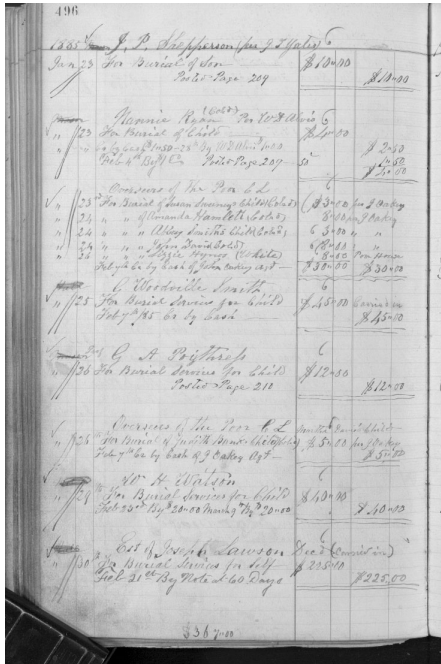 496
1885 J. P. Shepperson (per J T Yates)
Jan 23 For Burial of Son $10.00
Posted Page 209 $10.00
Nannie Ryan (Cold) Per W H Alvis
" 23 For Burial of Child $4.00
$2.50
Feb 4th By Posted Page 209 50
Overseers of the Poor C L
" 23d For Burial of Child (Cold) $3.00 per J Oakey
" 24 " " of Amanda Hamlett (Cold) 8.00 per J Oakey
" 24 " " " Abby Smiths Child (Cold) 6 3.00 " "
" 24 " " " John David (Cold) 8.00 "
" 24 " " " Lizzie Hynes (White) 8.00
Feb 7th Cr by Cash of John Oakey agt $30.00 $30.00
C Woodville Smith
" 25 For Burial Services for Child $45.00
Feb 7th 85 Cr by Cash $45.00
G A Prythress
" 26 For Burial Services for Child $12.00
Posted Page 210 $12.00
Overseers of the Poor C L
" 26 For Burial of Judith Banks Child (Cold) $5.00 per J Oakey
Feb 7th Cr by Cash of J Oakey Agt $5.00
W H Watson
" 29 For Burial Services for Child $40.00
Feb 23rd By $20.00 March By $20.00 $40.00
Est of Joseph Lawson Decd
" 30 For Burial Services for Self $225.00
Feb 21st By Note at 60 Days $225.00
$367.00